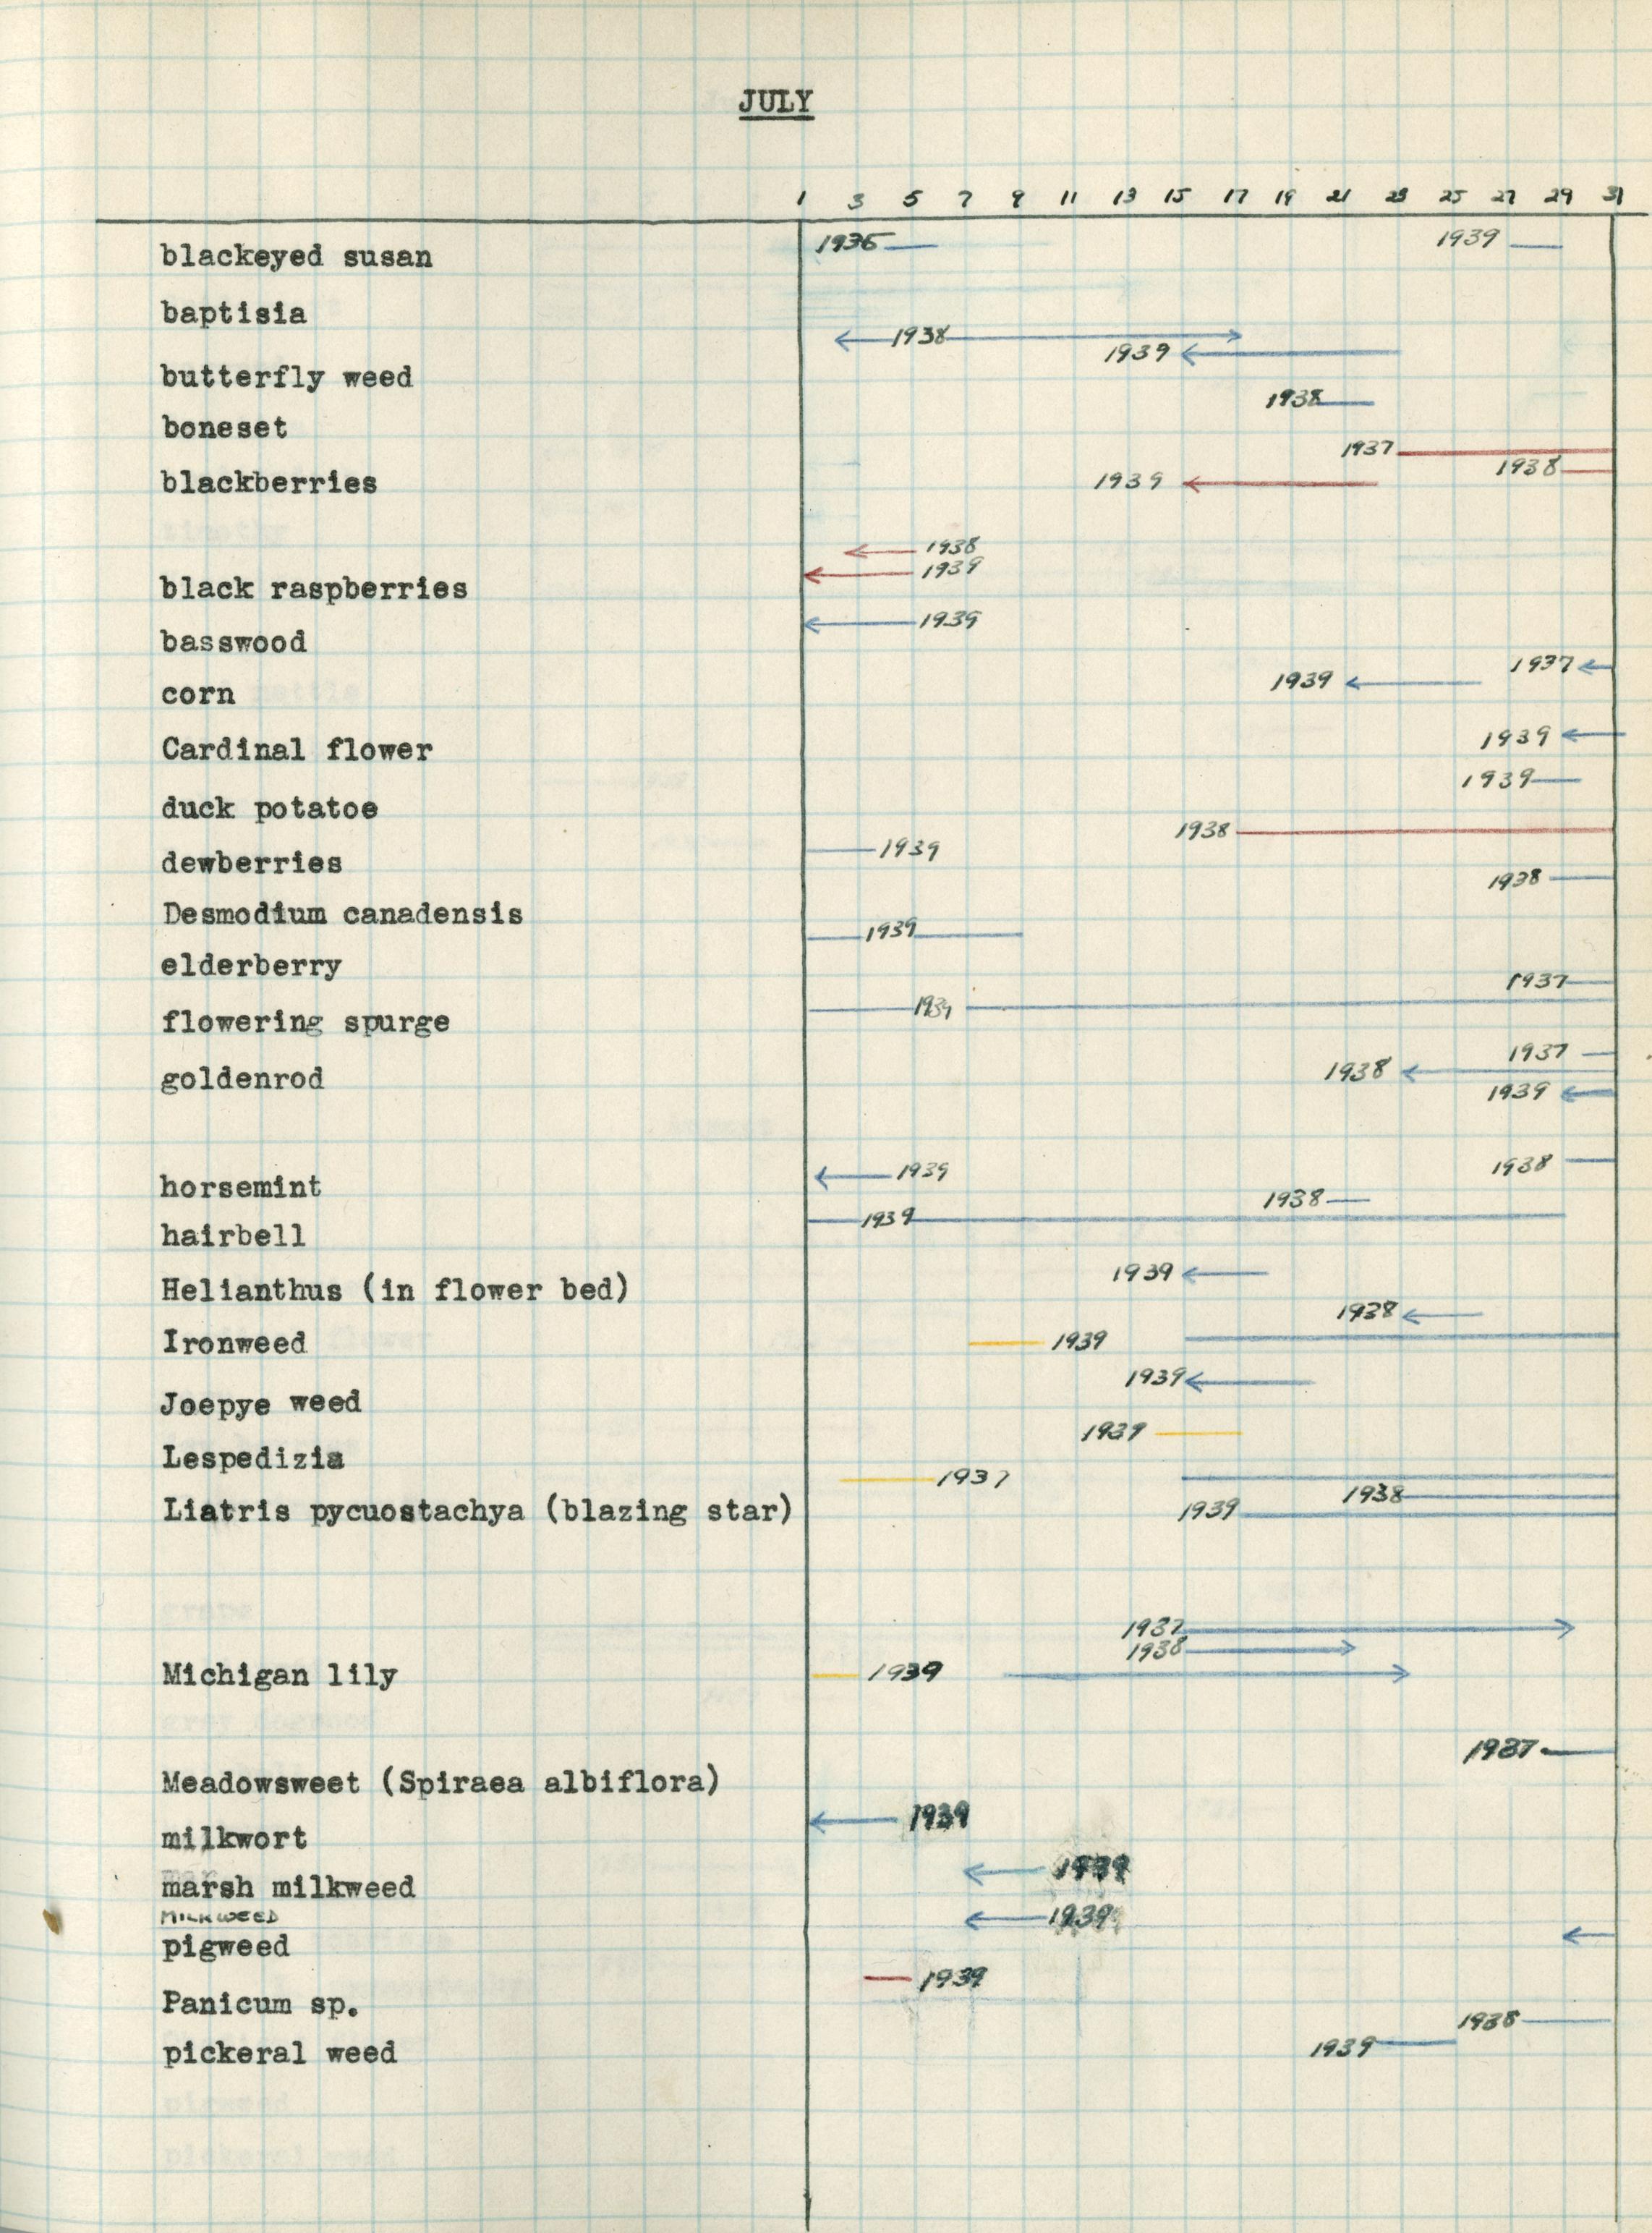 JULY
1 3 5 7 9 11 13 15 17 19 21 23 25 27 29 31
1936 1939
blackeyed susan
baptisia
1938
1939
butterfly weed
1938
boneset
1937
1938
blackberries 1939
1938
1939
black raspberries
1939
basswood
1937
corn 1939
Cardinal flower 1939
1939
duck potatoe
1938
1939
dewberries
1938
Desmodium canadensis
1939
elderberry
1937
1939
flowering spurge
1937
goldenrod 1938
1939
1938
1939
horsemint
1938
1939
hairbell
1939
Helianthus (in flower bed)
1938
Ironweed 1939
1939
Joepye weed
Lespedizia
1937
1938
Liatris pycuostachya (blazing star) 1939
1937
1938
Michigan lily 1939
1937
Meadowsweet (Spiraea albiflora)
1939
milkwort
1939
marsh milkweed
MILKWEED 1939
pigweed
1939
Panicum sp.
1938
pickeral weed 1939